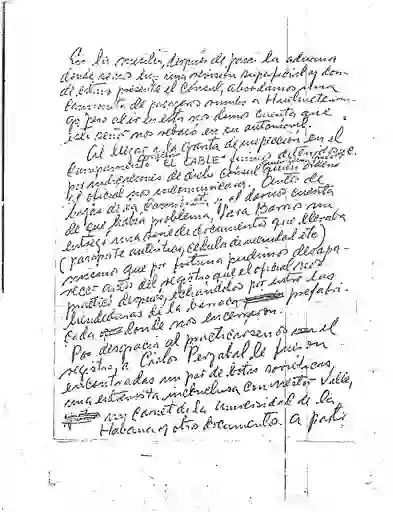 En la misma, después de pasar la aduana
donde se nos hizo una revisión superficial y don-
de estuvo presente el Cónsul, abordamos una
camioneta de pasajeros rumbo a Huehuetenan-
go pero al ir en esta nos dimos cuenta que
este señor nos rebasó en su automóvil.
Al llegar a la garita de inspección en el
campamento "EL CABLE" fuimos detenidos
por indicaciones de dicho Consul
el oficial nos incomunicara. Antes de
bajar de la camioneta y al darnos cuenta
de que había problema, Jara Barrios me
entregó una serie de documentos que llevaba
(pasaporte auténtico, cédula de vecindad etc)
mismos que por fortuna pudimos desapa-
recer antes del registro que el oficial nos
practicó después, echándolos por entre las
hendeduras de la barraca prefabri-
cada donde nos encerraron.
Por desgracia al practicársenos el
registro, a Carlos le fueron
encontradas un par de botas soviéticas,
una entrevista inconclusa con Valle,
un carnet de la Universidad de la
Habana y otro documento a parte